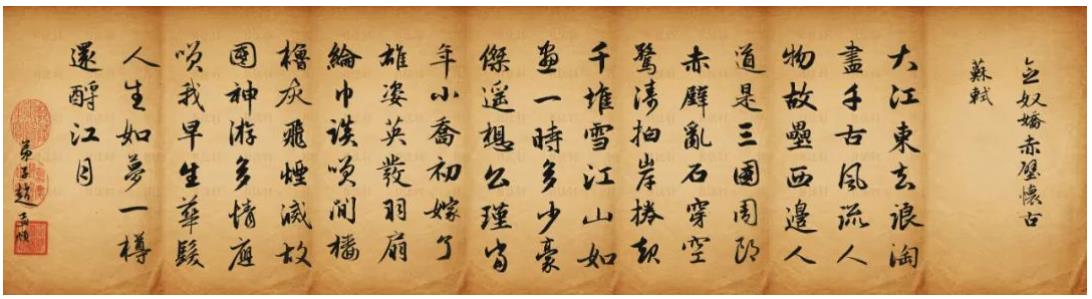 念奴嬌赤壁懷古
蘇軾
大江東去浪淘
盡千古風流人
物故壘西邊人
道是三國周郎
赤壁亂石穿空
驚濤拍岸捲起
千堆雪江山如
畫一時多少豪
傑遙想公瑾當
年小喬初嫁了
雄姿英發羽扇
綸巾談笑間檣
櫓灰飛煙滅故
國神游多情應
笑我早生華髮
人生如夢一樽
還酹江月